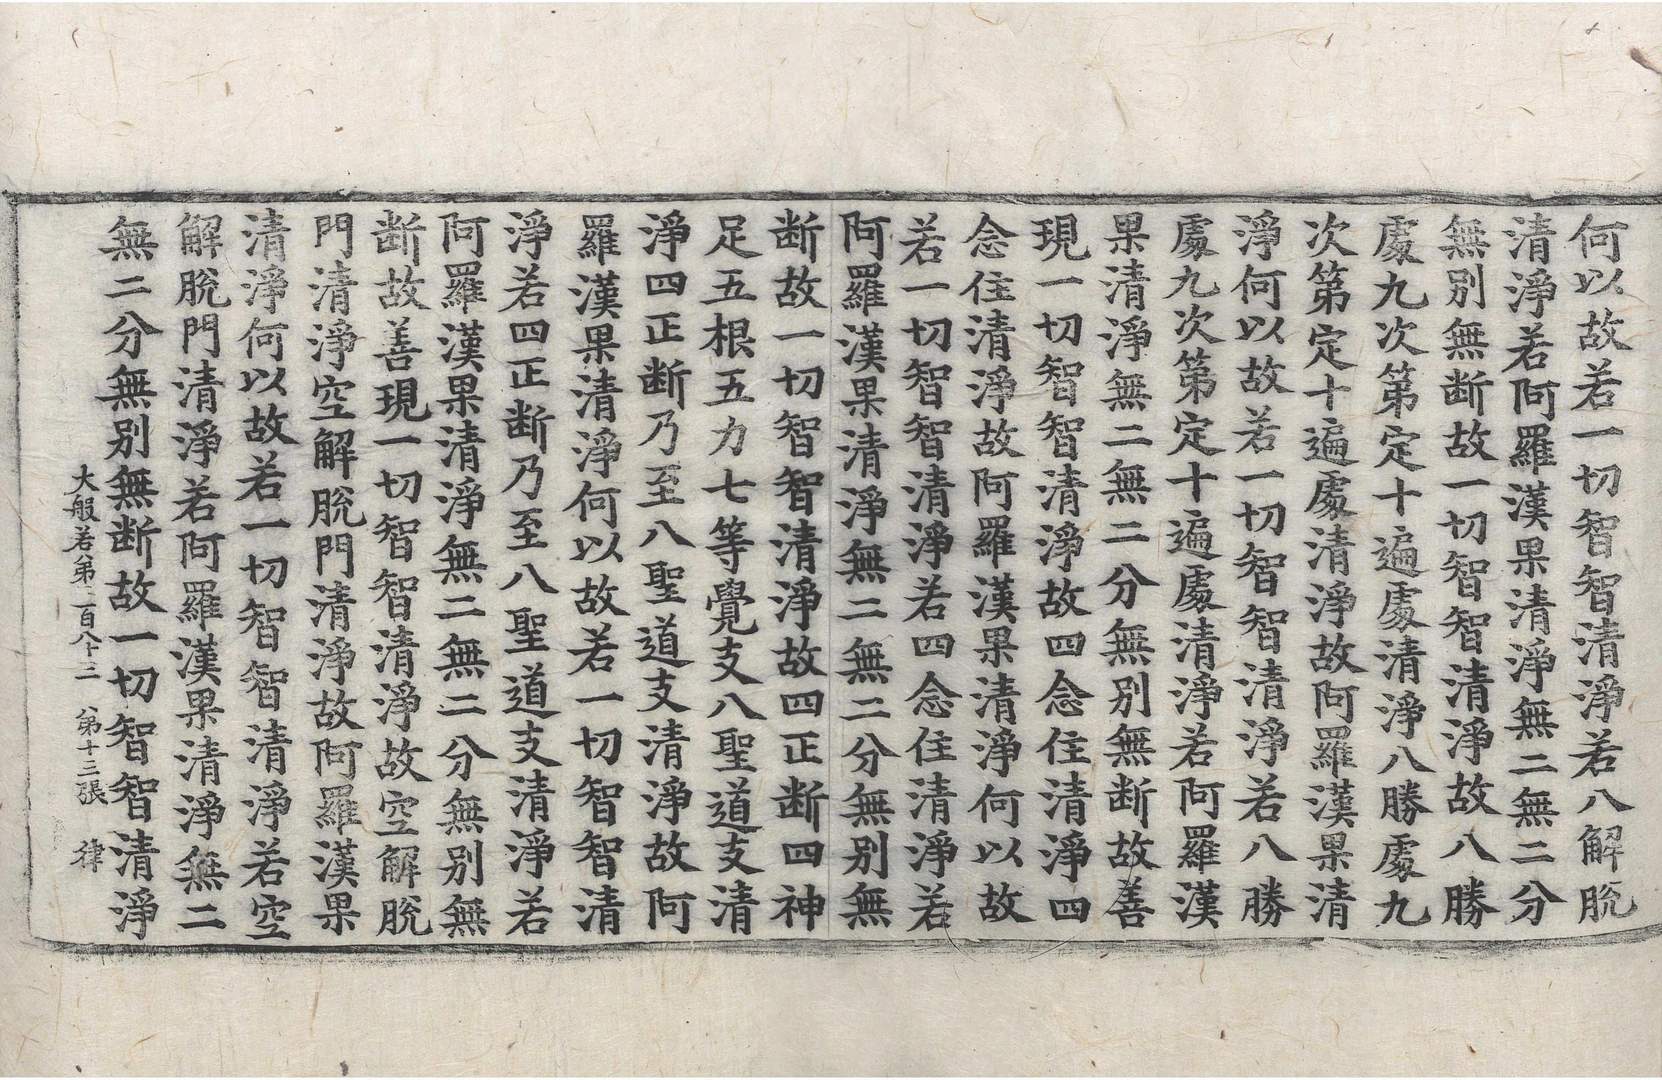 何以故若一切智智清淨若八解脫
清淨若阿羅漢果清淨無二無二分
無別無断故一切智智清淨故八勝
處九次第定十遍處清淨八勝處九
次第定十遍處清淨故阿羅漢果清
淨何以故若一切智智清淨若八勝
處九次第定十遍處清淨若阿羅漢
果清淨無二無二分無別無断故善
現一切智智清淨故四念住清淨四
念住清淨故阿羅漢果清淨何以故
若一切智智清淨若四念住清淨若
阿羅漢果清淨無二無二分無別無
断故一切智智清淨故四正断四神
足五根五力七等覺支八聖道支清
淨四正断乃至八聖道支清淨故阿
羅漢果清淨何以故若一切智智清
淨若四正断乃至八聖道支清淨若
阿羅漢果清淨無二無二分無別無
断故善現一切智智清淨故空解脫
門清淨空解脫門清淨故阿羅漢果
清淨何以故若一切智智清淨若空
解脫門清淨若阿羅漢果清淨無二
無二分無別無断故一切智智清淨
大般若第二百八十三 第十三張 律